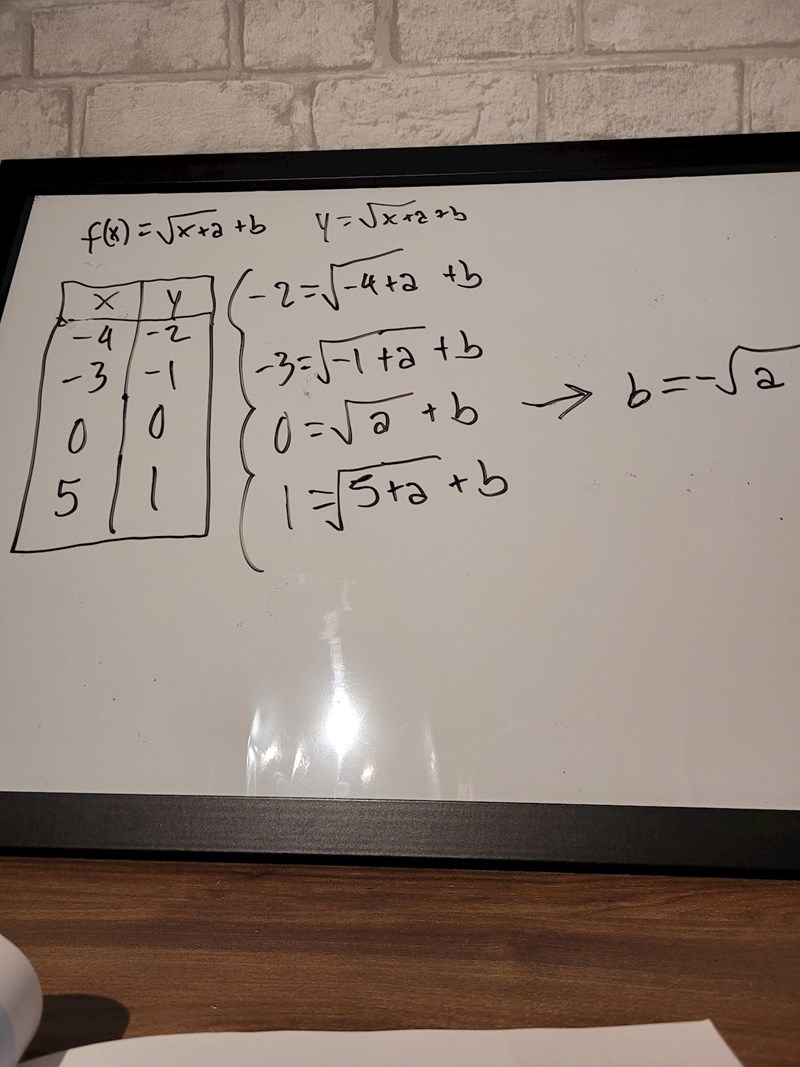 f(x) = √x+a + b    y = √x+a + b
x y
-4 -2
-3 -1
0 0
5 1
-2 = √-4+a + b
-3 = √-1+a + b
0 = √a + b → b = -√a
1 = √5+a + b